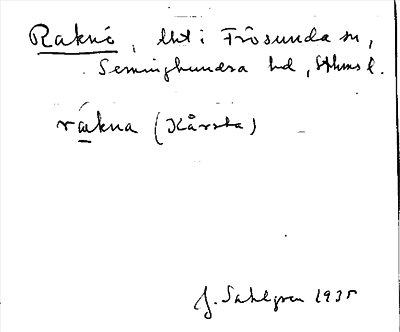 Raknö, Uht i Frösunda sn,
Seminghundra hd, Sthms l.
räkna (Kårsta)
J. Sahlgren 1935